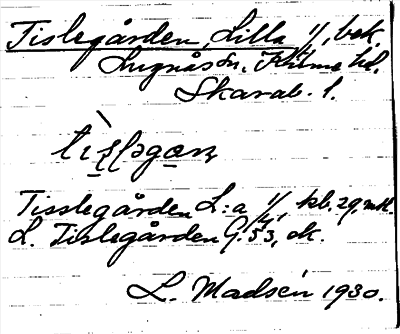 Tislegården, Lilla 1/1, bek.
Lugnås sn. Kinne hd.
Skarab. l.
Tisslegården L:a 1/4, kb. 29, mtl.
L. Tislegården G. 53, ek.
L. Madsén 1930.